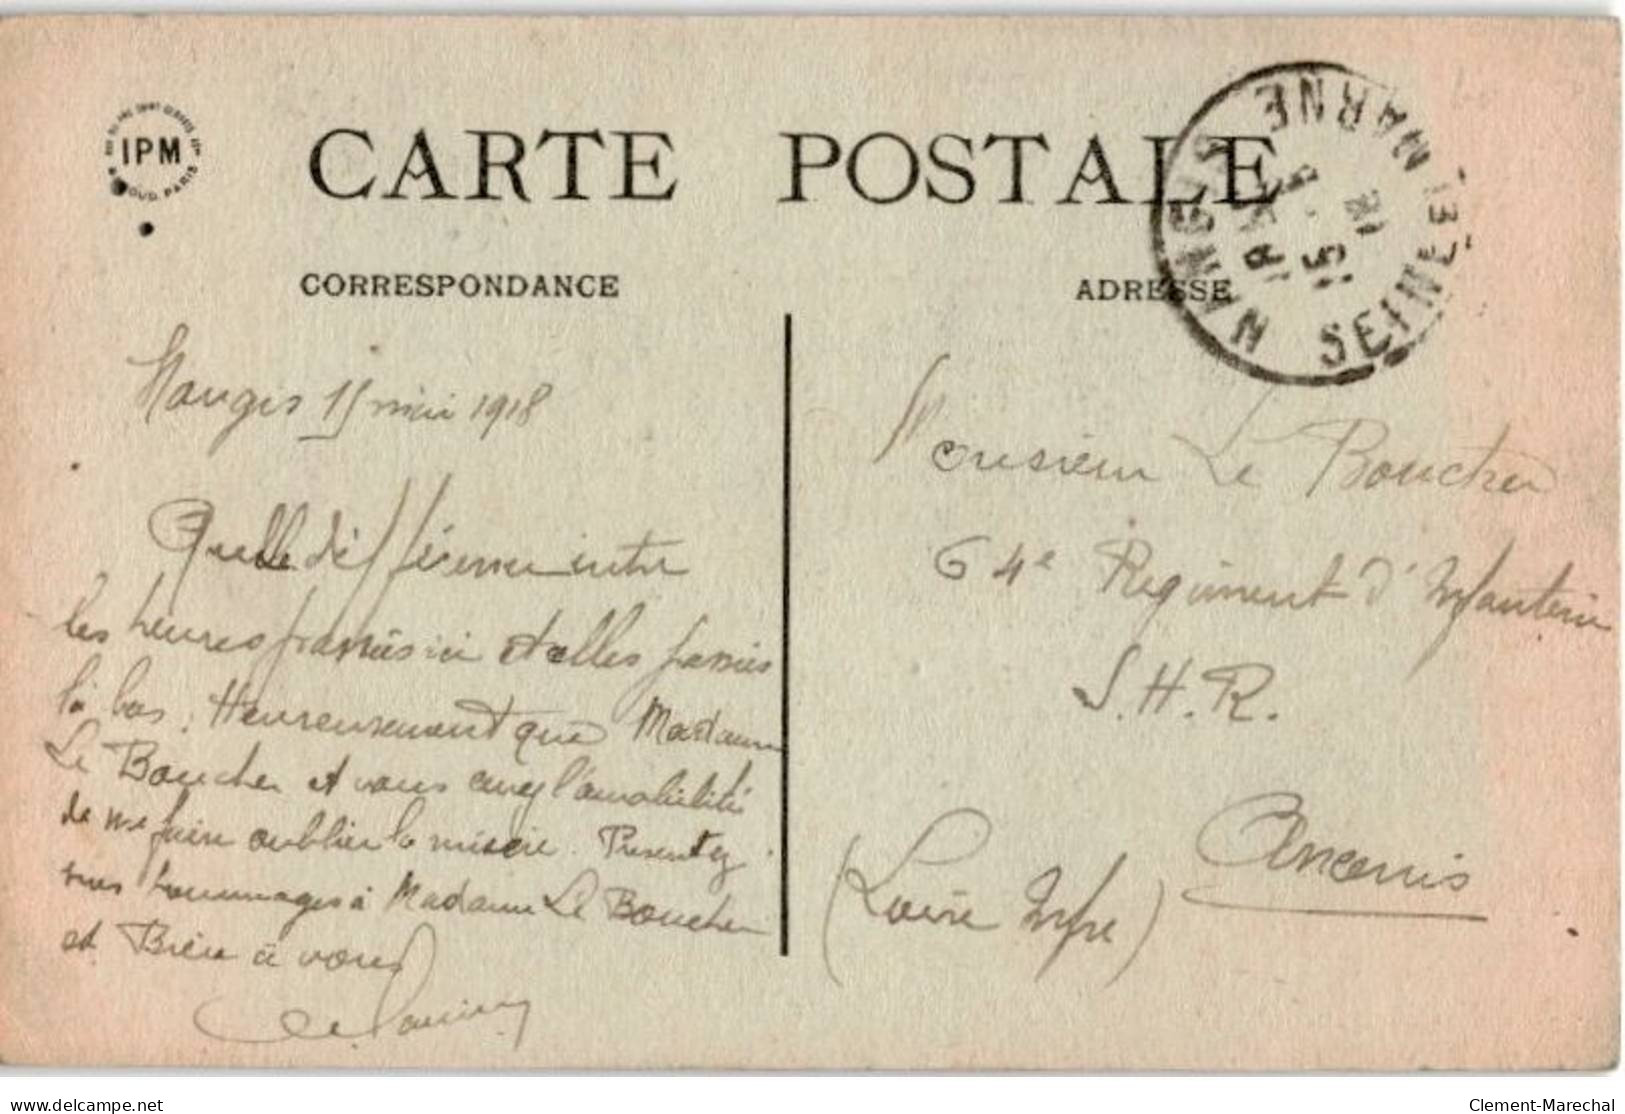 IPM
CARTE POSTALE
CORRESPONDANCE
ADRESSE
NANGIS
SEINE ET MARNE
15
Nangis 15 mai 1918
Quelle différence entre
les heures passées ici et celles passées
là bas. Heureusement que Madame
Le Boucher et vous avez l'amabilité
de me faire oublier la misère. Présentez
mes hommages à Madame Le Boucher
et Bien à vous
Monsieur Le Boucher
64e Régiment d'Infanterie
S.H.R.
Ancenis
(Loire Infre)
Clement-Marechal
delcampe.net